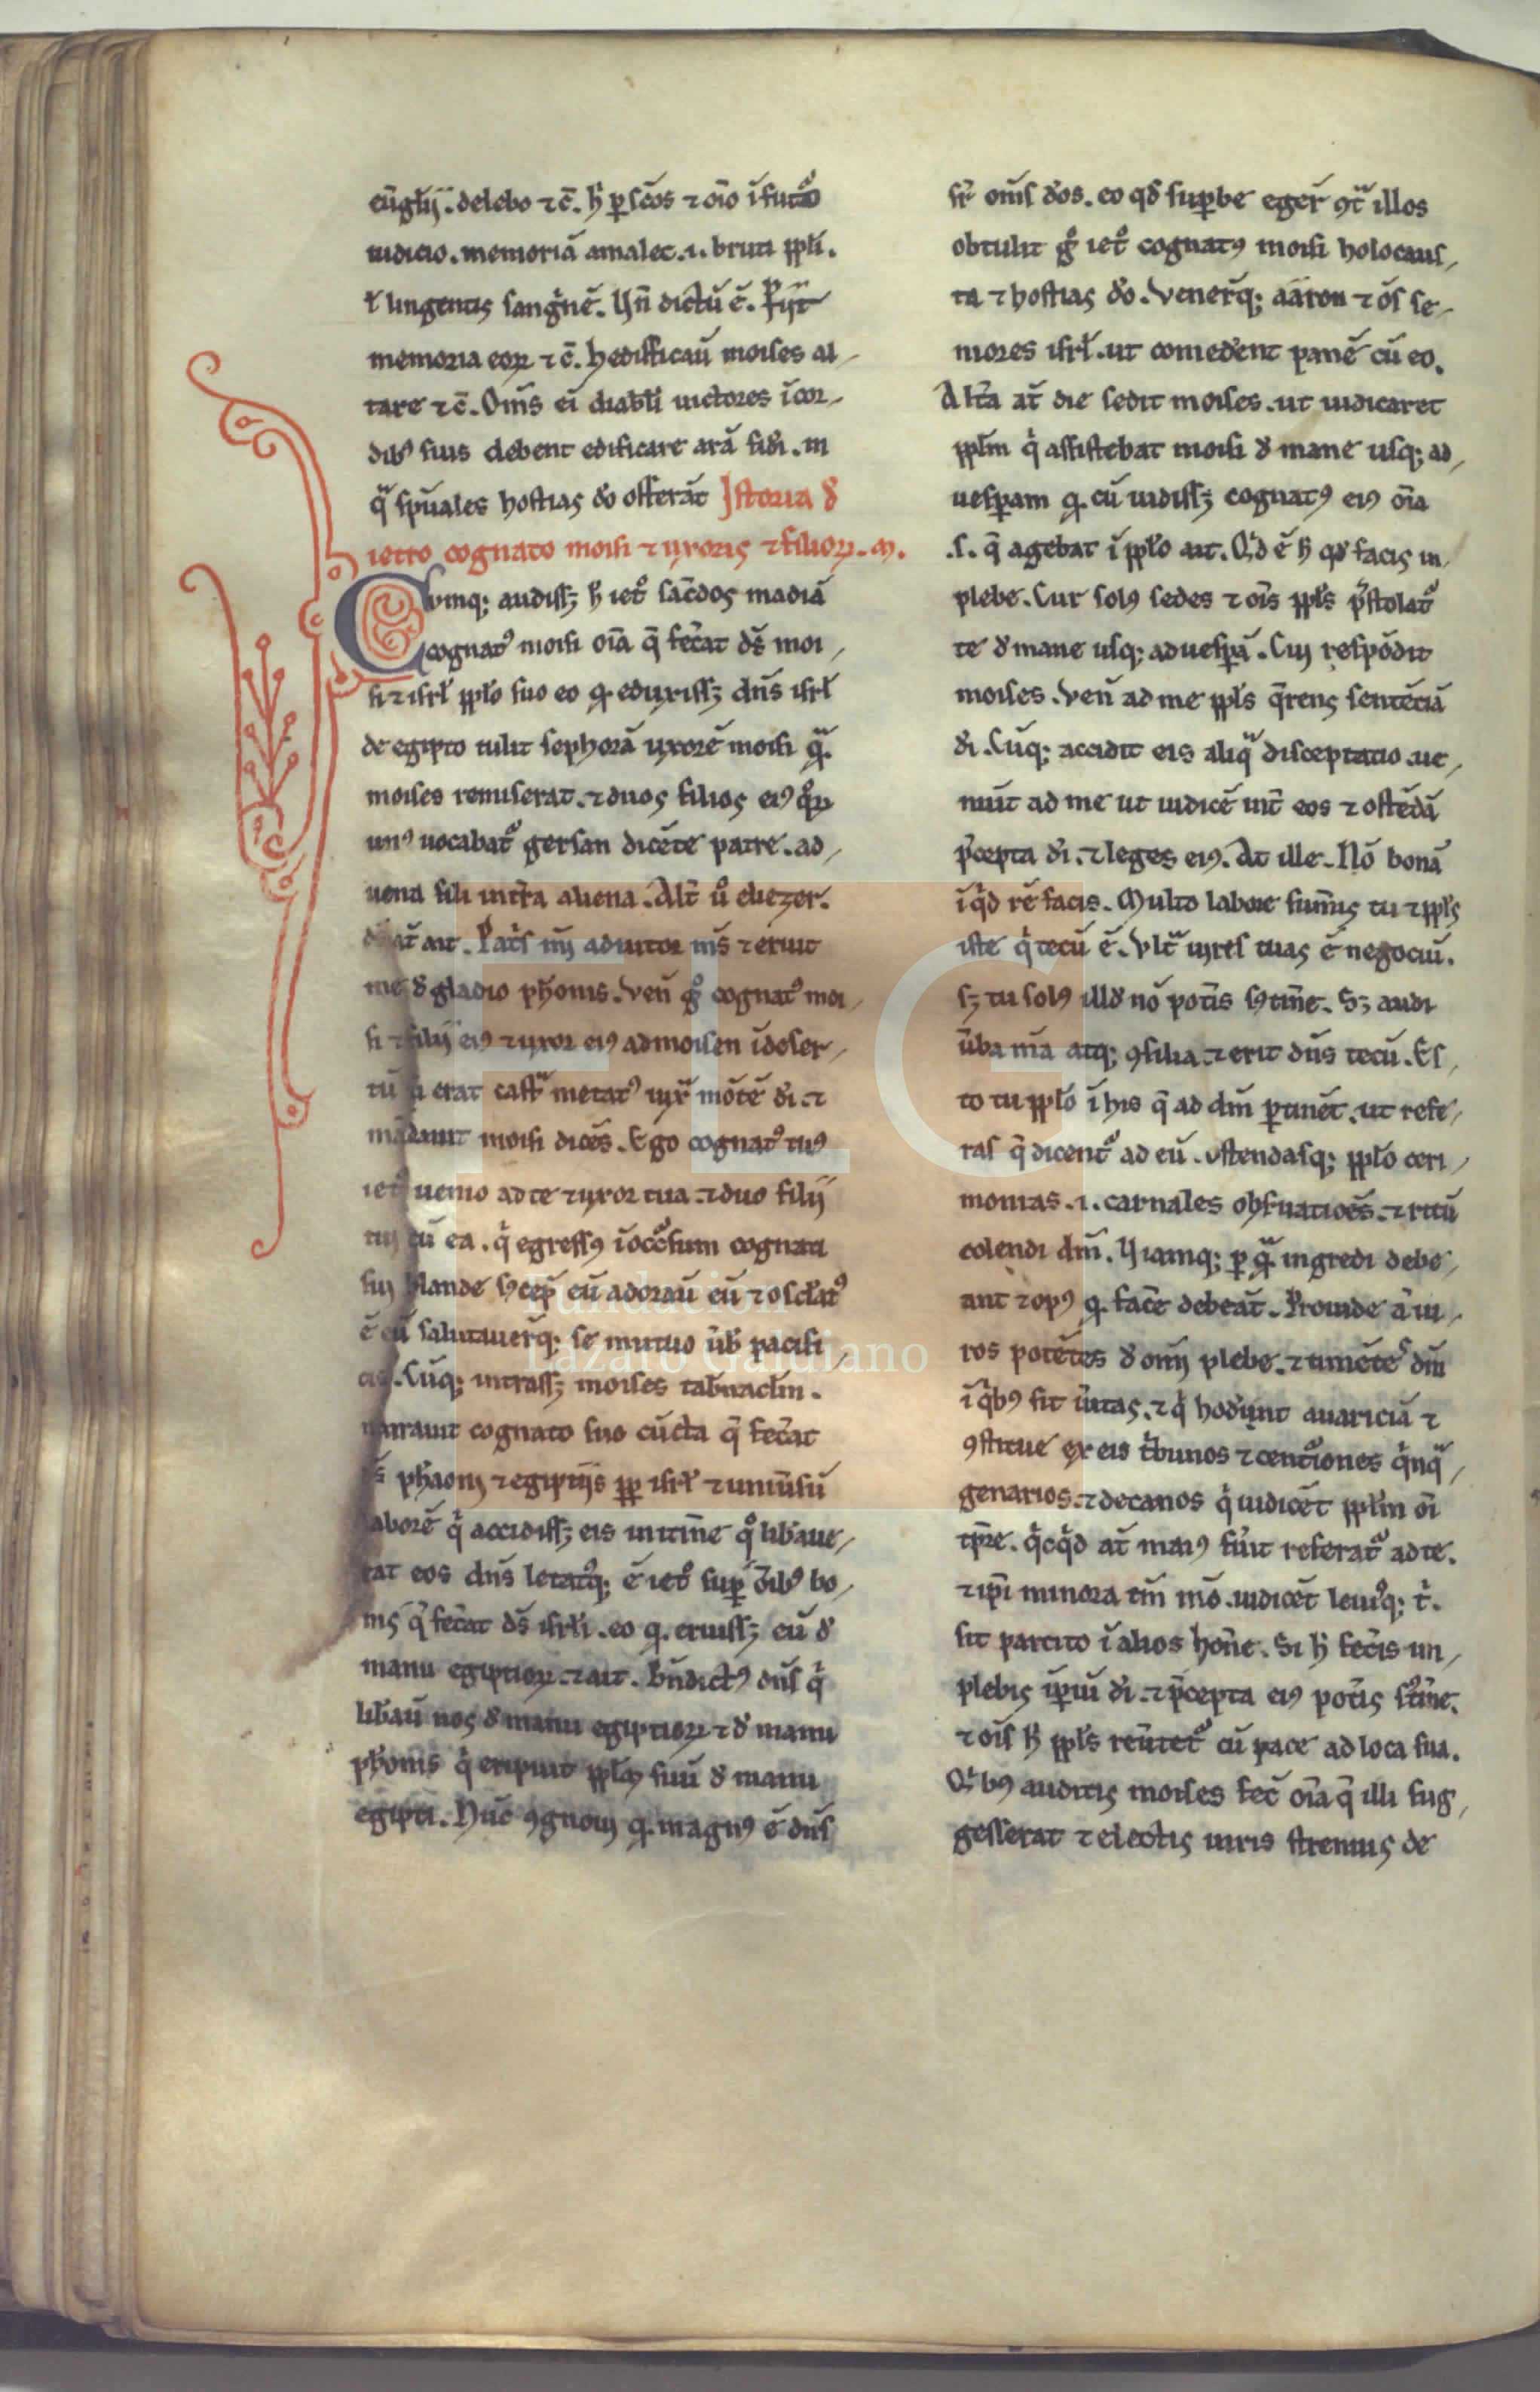 eūglij. delebo ⁊ c̄. h̄ ꝑ sc̄os ⁊ oīo ī futᵒ
iudicio. memoriā amalec .i. bruti pp̄li.
ł lingentis sang̾nē. Hn̄ dictū ē. P̄ijt
memoria eoꝝ ⁊ c̄. hedifficaū moises al-
tare ⁊ c̄. Om̄s ei diab̄li uictores ī cor-
dibꝰ suis debent edificare arā fid̾i. in
qᵃ sp̄uales hostias d̾o offerāt Istoria d̾
ietro cognato moisi ⁊ uxoris ⁊ filioꝝ. M.
Cvmq; audiss; h̾ ietᵒ sac̄dos madiā
cognatꝰ moisi oīa q̄ fec̾at ds̄ moi-
si ⁊ isrł pp̄lo suo eo ꝙ eduxiss; dn̄s isrł
de egipto tulit sephorā uxorē moisi qᵃ.
moises remiserat. ⁊ duos filios eiꝰ qᵒꝝ
unꝰ uocabatᵒ gersan dicēte patre. ad-
uena fui in t̄ra aliena. Alt̄ ū eliezer.
at̄ ait. Pat̾s mī adiutor m̄s ⁊ eruit
me d̾ gladio ph̄onis. Ven̄ gᵒ cognatꝰ moi-
si ⁊ filij eiꝰ ⁊ uxor eiꝰ ad moisen ī deser-
tū u̾ erat castᵃ metatꝰ iuxᵃ mōtē d̾i. ⁊
mādauit moisi dicēs. Ego cognatꝰ tuꝰ
ietᵒ uenio ad te ⁊ uxor tua. ⁊ duo filij
tui cū ea. q̾ egressꝰ ī occᵒsum cognati
sui blande sꝰcep̄ eū adoraū eū ⁊ osclatꝰ
ē eū salutauer̄q; se mutuo ūb̾ pacifi-
cis. Cūq; intrass; moises tab̾naclm̄.
narrauit cognato suo cūcta q̄ fec̾at
ds̄ ph̄aoni ⁊ egiptijs ꝓp isrł ⁊ uniūsū
laborē q̾ accidiss; eis in itin̄e qᵒ lib̾aue-
rat eos dn̄s letatꝰq; ē ietᵒ suꝑ oīb̾ꝰ bo-
nis q̾ fec̾at ds̄ isrłi. eo ꝙ. eruiss; eū d̾
manu egiptioꝝ. ⁊ ait. Bn̄dictꝰ dn̄s q̾
lib̾aū nos d̾ manu egiptioꝝ ⁊ d̾ manu
ph̄onis q̾ eripuit pp̄lm̄ suū d̾ manu
egipti. Nūc ꝯgnoui ꝙ. magnꝰ ē dn̄s
sr̄ om̄s d̾os. eo qd̾ suꝑbe eger̄ ꝯtᵃ illos
obtulit gᵒ ietᵒ cognatꝰ moisi holocaus-
ta ⁊ hostias d̾o. Vener̄q; aaron ⁊ oīs se-
niores isrł. ut comed̾ent panē cū eo.
Alt̄a at̄ die sedit moises. ut iudicaret
pp̄lm q̾ assistebat moisi d̾ mane usq; ad-
uesꝑam ꝙ. cū uidiss; cognatꝰ eiꝰ oīa
.s. q̄ agebat ī pp̄lo ait. Qᵈ ē h̾ qd̾ facis in
plebe. Cur solꝰ sedes ⁊ oīs pp̄ls p̄stolatᵒ
te d̾ mane usq; ad uesꝑā. Cui respōdit
moises. Ven̄ ad me pp̄ls q̄rens sentēciā
d̾i. Cūq; accidit eis aliqᵃ disceptatio. ue-
niūt ad me ut iudicē int̄ eos ⁊ ostēdā
p̄cepta d̾i. ⁊ leges eiꝰ. At ille. Nō bonā
īq̾d rē facis. Multo labore sum̄is tu ⁊ pp̄ls
iste q̾ tecū ē. Vltᵃ uires tuas ē negociū.
s; tu solꝰ illd̾ nō pot̄is sꝰtin̄e. S; audi
ūba m̄a atq; ꝯsilia. ⁊ erit dn̄s tecū. Es-
to tu pp̄lo ī his q̄ ad dm̄ ꝑtinēt. ut refe-
ras q̄ dicentᵒ ad eū. ostendasq; pp̄lo ceri-
monias .i. carnales obs̾uatiōes. ⁊ ritū
colendi dm̄. Uiamq; ꝑ qᵃ. ingredi debe-
ant ⁊ opꝰ ꝙ. fac̄e debeāt. Prouide at̄ ui-
ros potētes d̾ omī plebe. ⁊ timētes dm̄
ī q̾bꝰ sit ūitas. ⁊ q̾ hod̾iunt auariciā ⁊
ꝯstitue ex eis t̾bunos ⁊ centᵒiones q̾nqᵃ-
genarios. ⁊ decanos q̾ iudicēt pp̄lm oī
tp̄re. q̾cq̾d at̄ maiꝰ fūit referatᵒ ad te.
⁊ ip̄i minora tm̄ mō. iudicēt leuiꝰq; t̾.
sit partito ī alios hon̄e. Si h̾ fec̾is un-
plebis īꝑiū d̾i. ⁊ p̄cepta eiꝰ pot̄is sꝰtin̄e.
⁊ oīs h̾ pp̄ls reūtetᵒ cū pace ad loca sua.
Q̾bꝰ auditis moises fec̄ oīa q̄ illi sug-
gesserat ⁊ electis uiris strenuis de
FLG
Fundación
Lázaro Galdiano